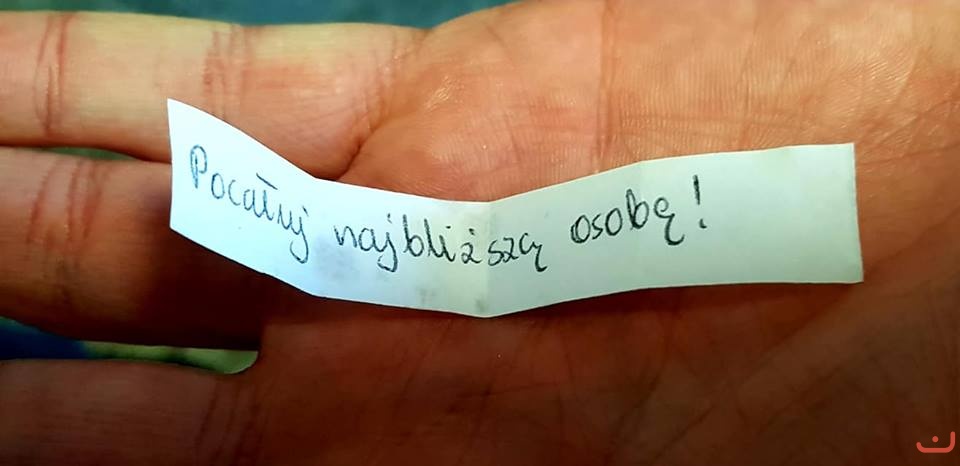 Pocałuj najbliższą osobę!